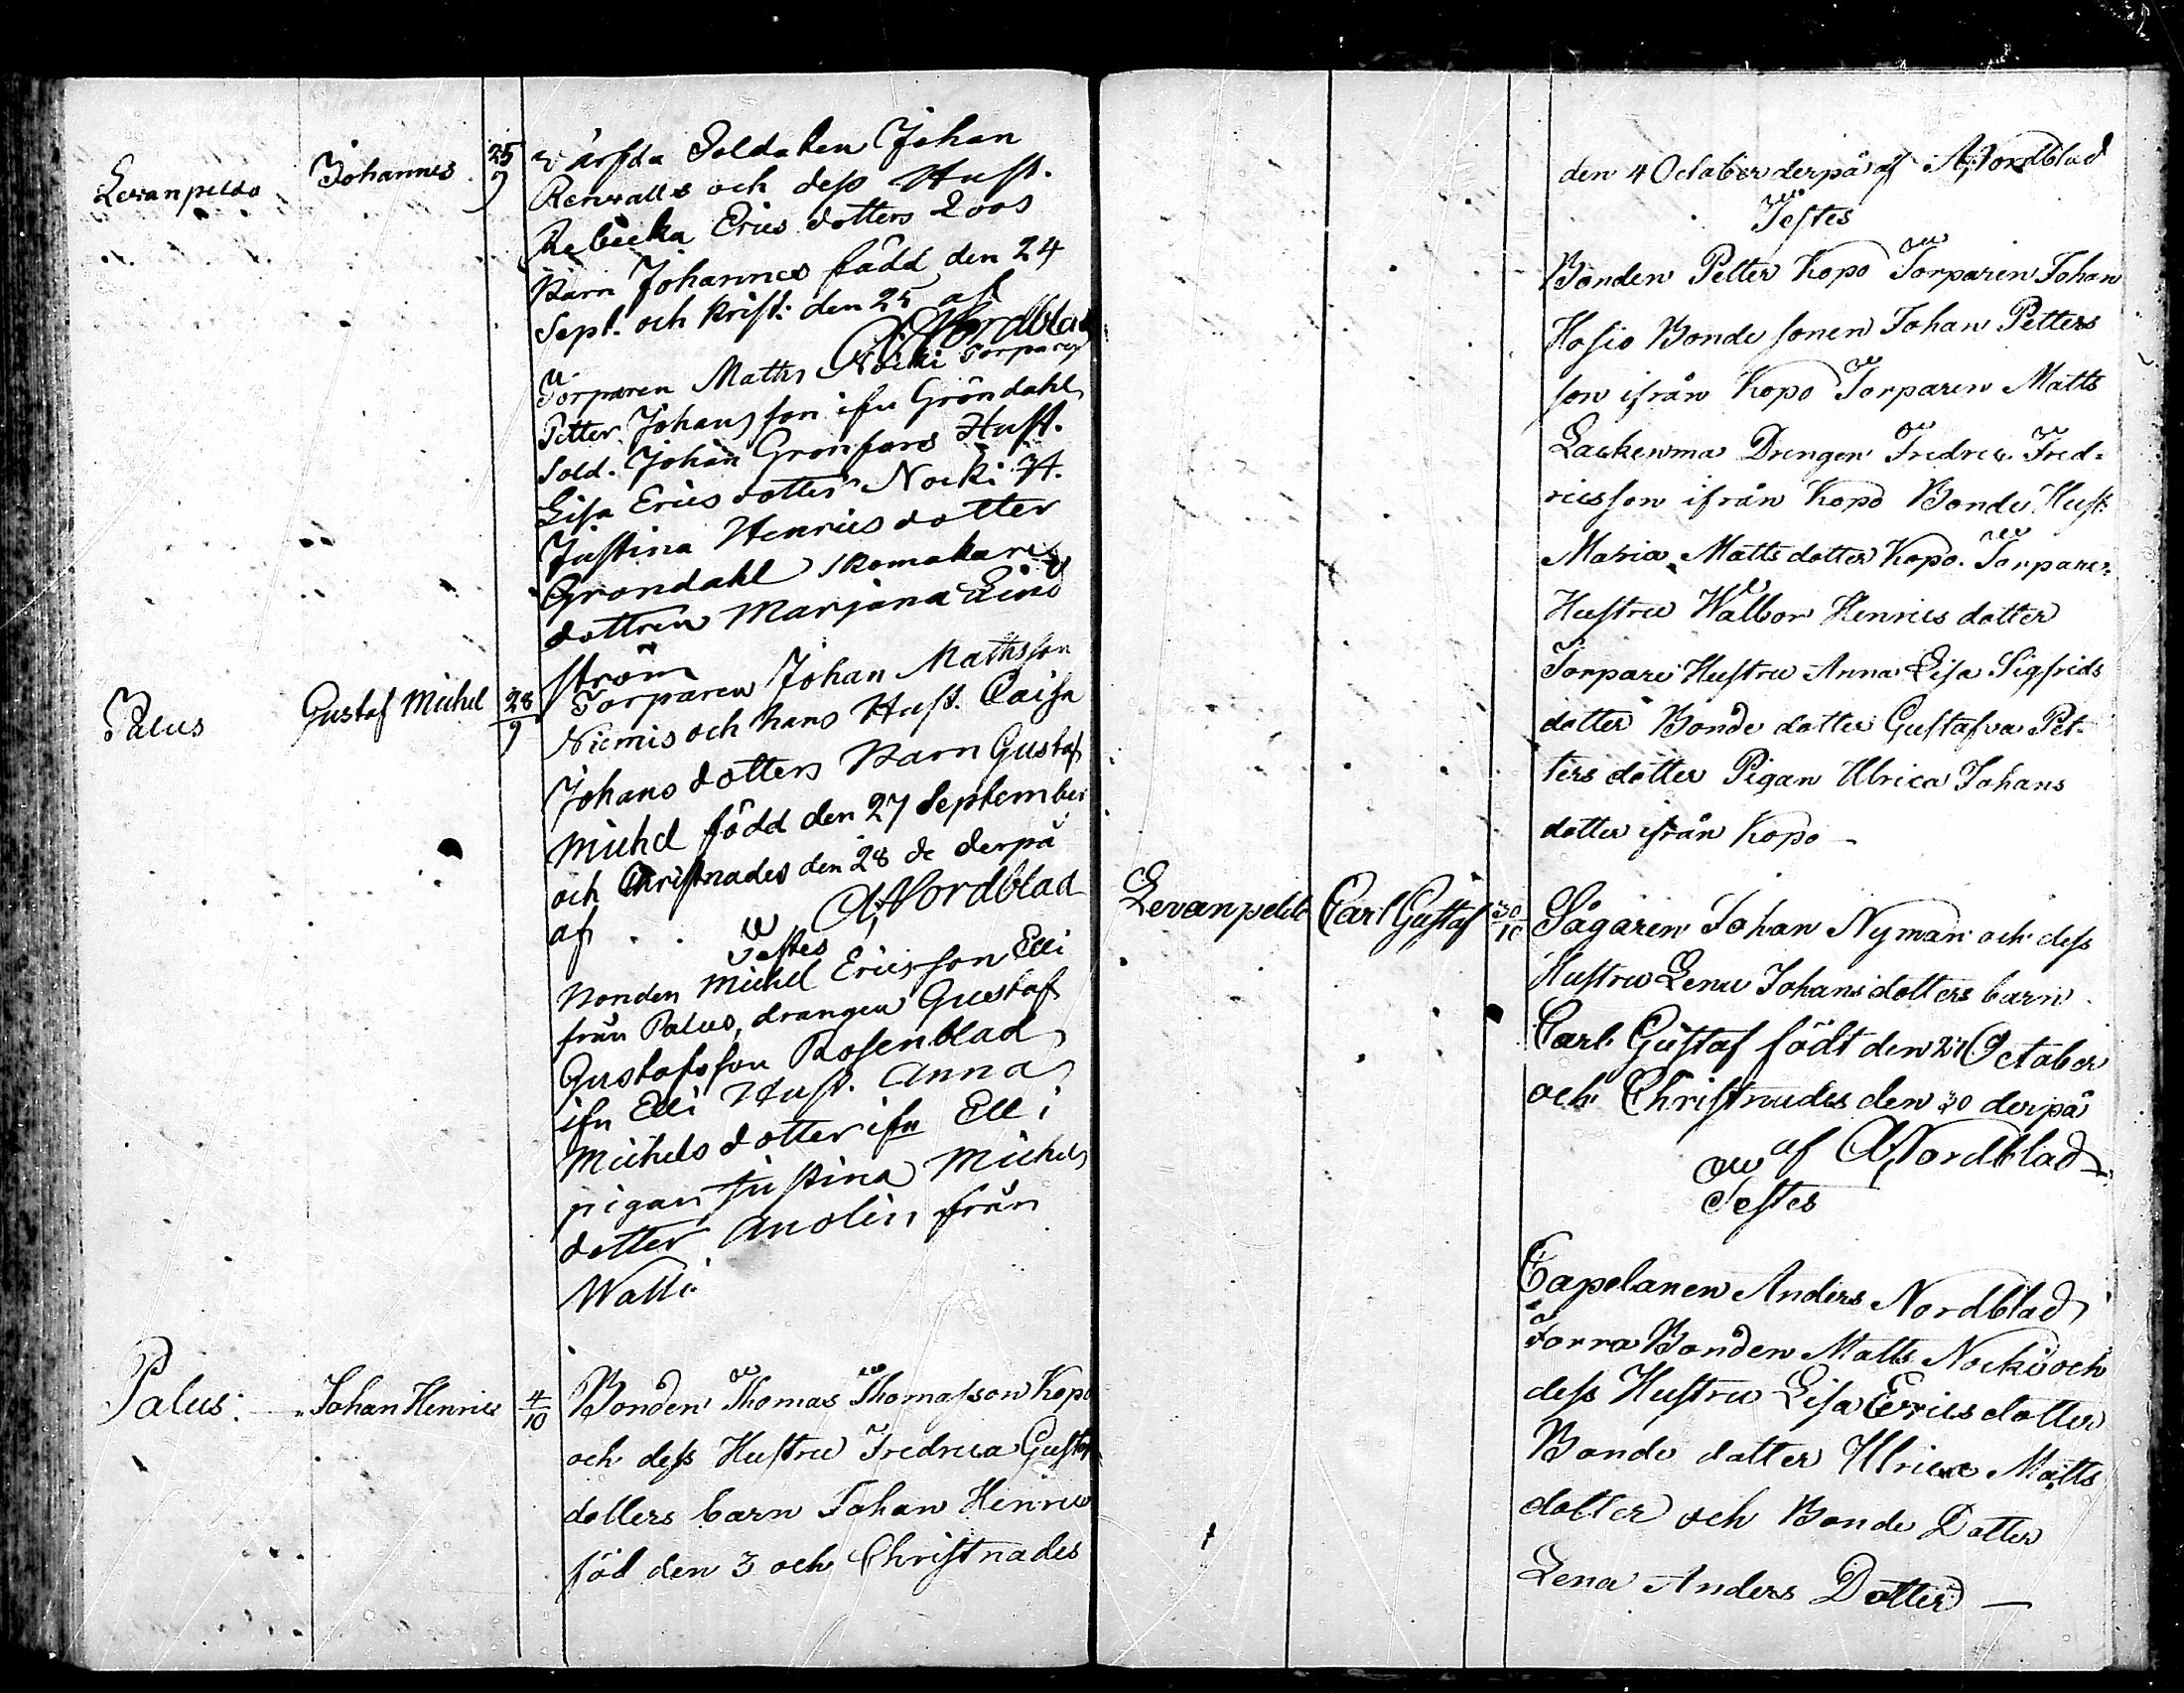 Levanpeldo Johannes 25/9 värfda Soldaten Johan
Renvalls och dess Hust.
Rebecka Erics dotters 2oos
Barn Johannes född den 24
Sept. och krist: den 25 af
A Nordblad
Torparen Matts Nocki Torparen
Petter Johansson ifrn Gröndahl
Sold. Johan Gronfors Hust.
Lisa Ericsdotter Nocki H.
Justina Henricsdotter
Grondahl skomakare
dottren Marjana Lind
ström
Palus Gustaf Michel 28/9 Torparen Johan Mathsson
Niemis och hans Hust. Caisa
Johans dotters Barn Gustaf
Michel född den 27 September
och Christnades den 28 de derpå
af A Nordblad
Testes
Bonden Michel Ericsson Elli
från Palus, drängen Gustaf
Gustafsson Rosenblad
ifn Elli Hust. Anna
Michels dotter ifn Elli
pigan Justina Michels
dotter Anolin från
Walli
Palus: Johan Henric 4/10 Bonden Thomas Thomasson Kopo
och dess Hustru Fredrica Gustaf
dotters barn Johan Henric
föd den 3 och Christnades
den 4 October derpå af A Nordblad
Testes
Bonden Petter Kopo Torparen Johan
Hosio Bonde sonen Johan Petters
son ifrån Kopo Torparen Matts
Lackenma Drengen Fredric Fred-
ricsson ifrån Kopo Bonde Hust:
Maria Matts dotter Kopo. Torpare-
Hustru Walbor Henrics dotter
Torpare Hustru Anna Lisa Sigfrids
dotter Bonde dotter Gustafva Pet-
ters dotter Pigan Ulrica Johans
dotter ifrån Kopo –
Levanpeldo Carl Gustaf 30/10 Sågaren Johan Nyman och dess
Hustru Lena Johans dotters barn
Carl Gustaf födt den 27 October
och Christnades den 30 derpå
af A Nordblad
Testes
Capelanen Anders Nordblad
Forra Bonden Matts Nocki och
dess Hustru Lisa Erics dotter
Bonde dotter Ulrica Matts
dotter och Bonde Dotter
Lena Anders Dotter –